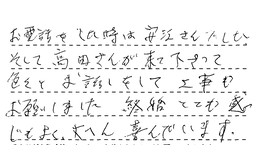 お電話をした時は 安江さんでした。
そして高田さんが来て下さって
色々とお話しをして工事も
お願いしました 終始とても感
じもよく、大へん喜んでいます。